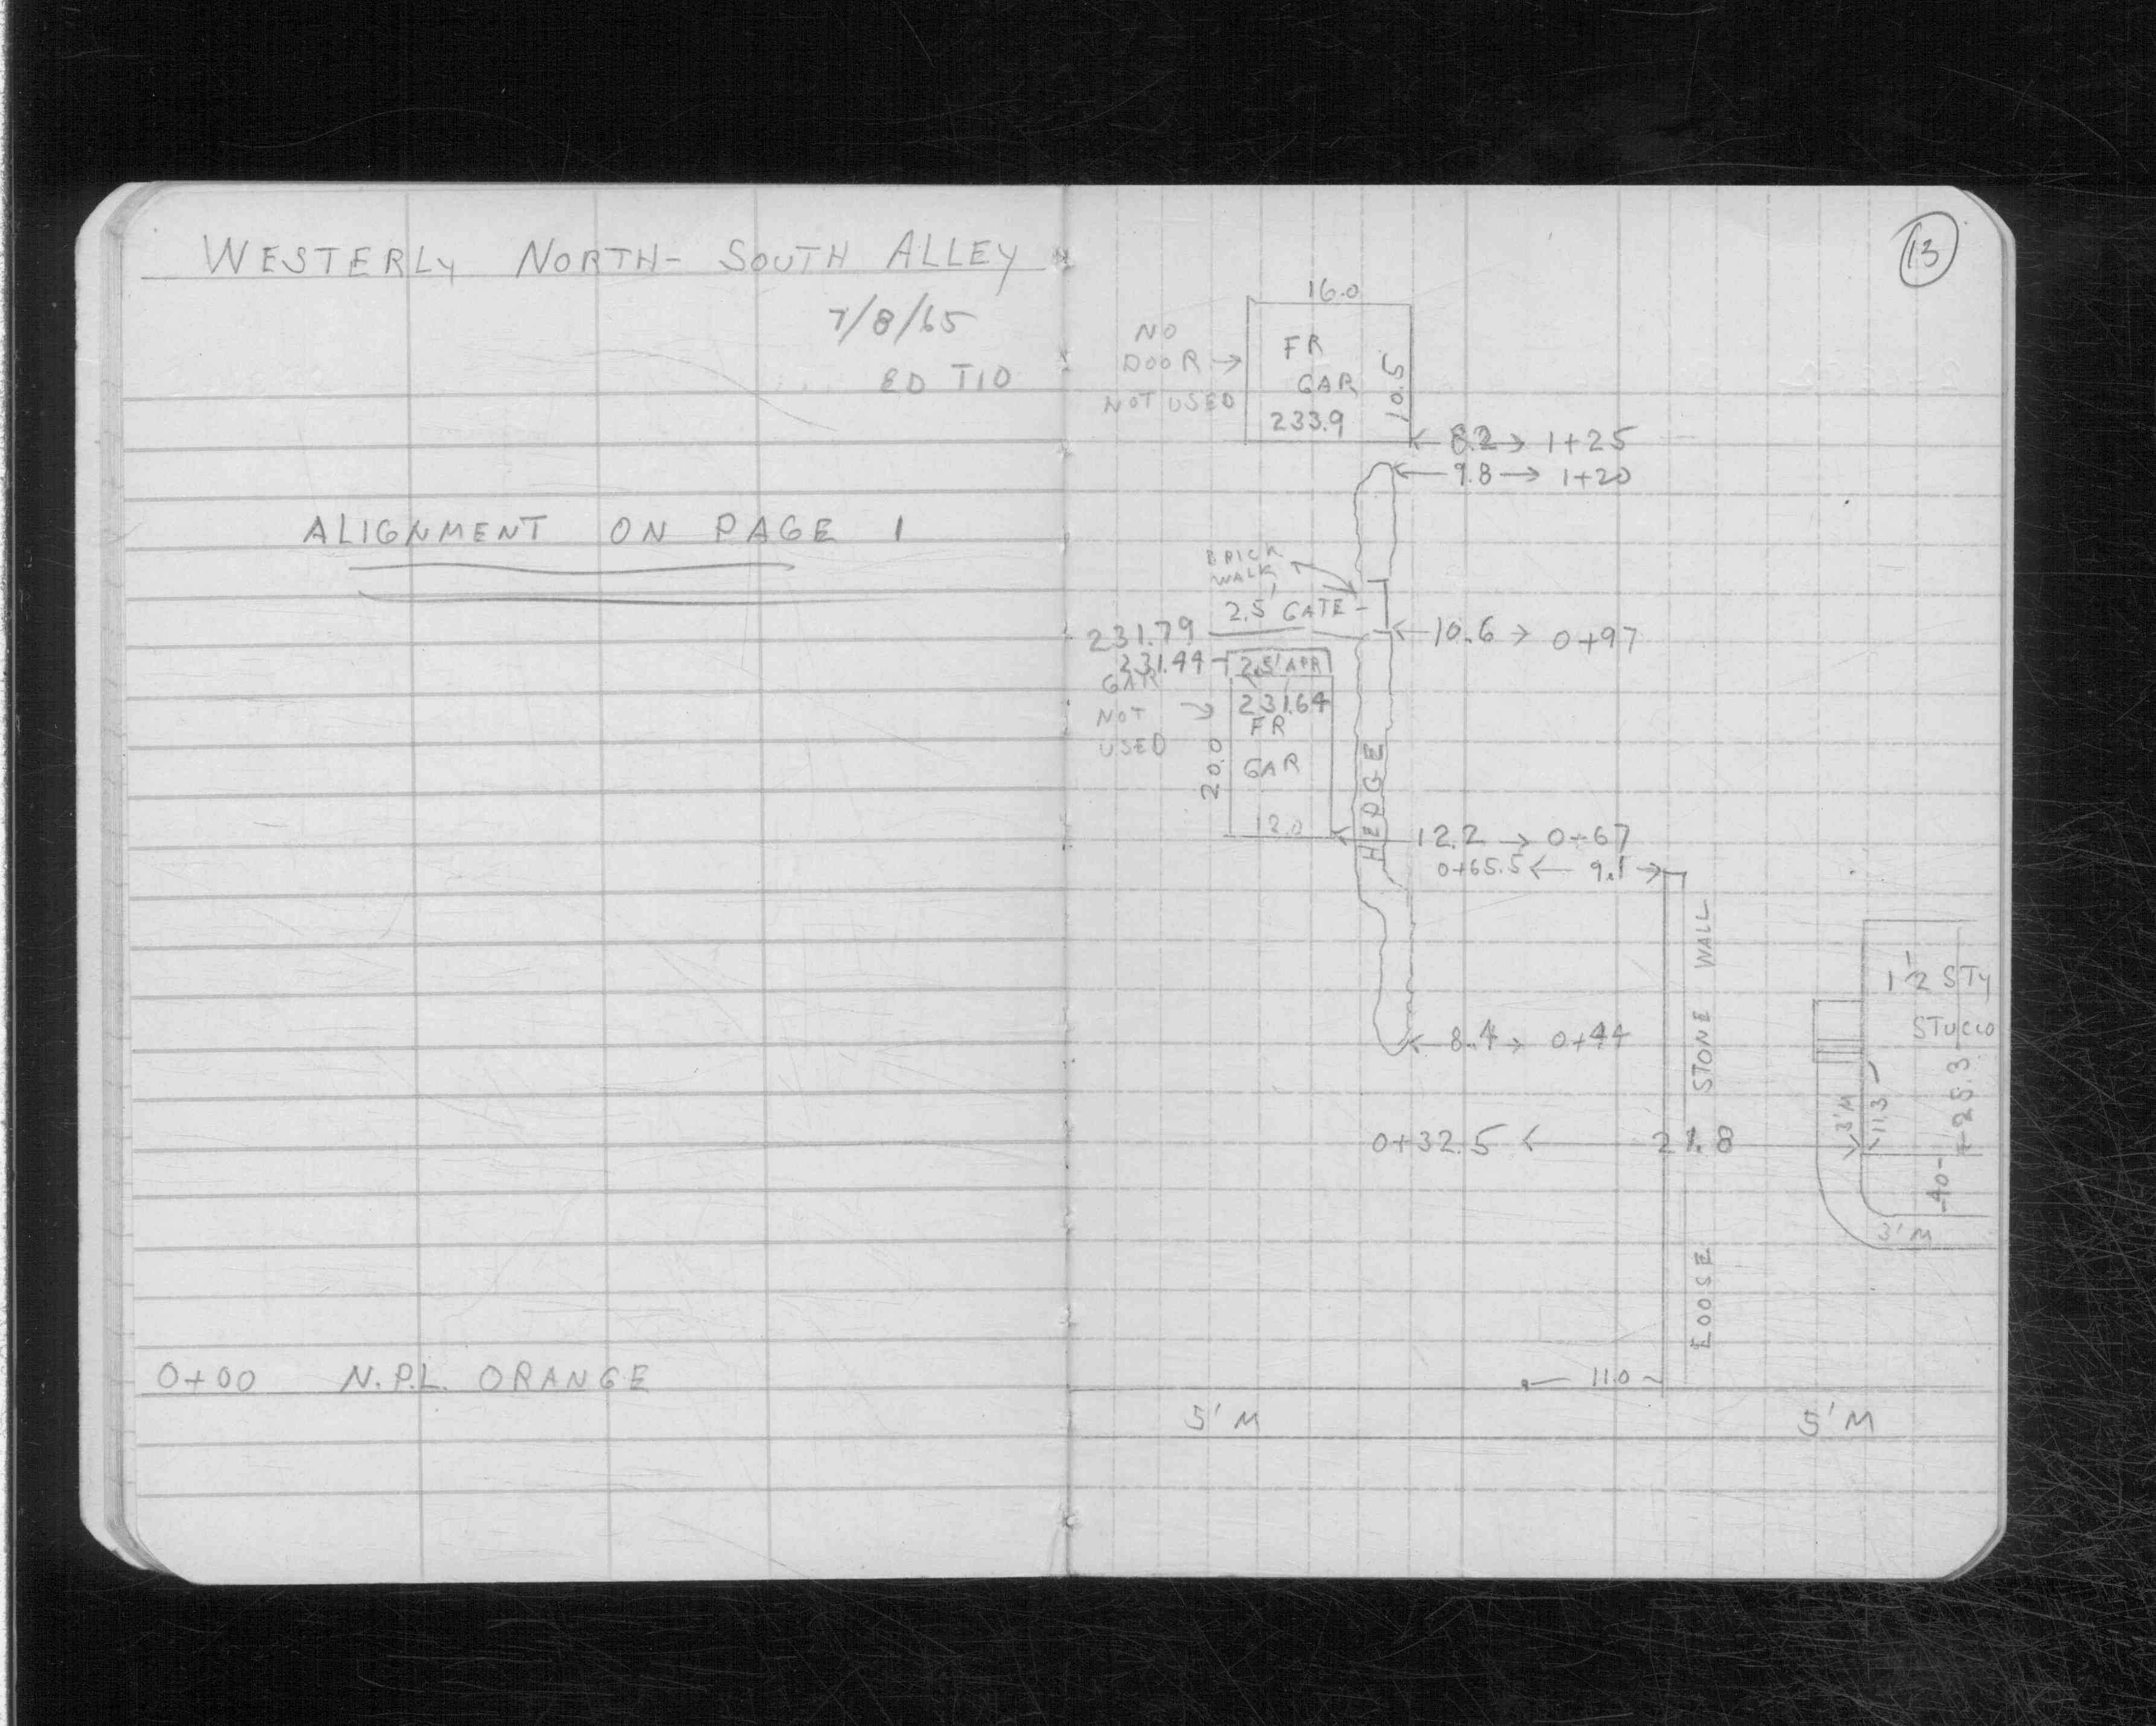 WESTERLY NORTH- SOUTH ALLEY
7/8/65
ED TIO
ALIGNMENT ON PAGE 1
0+00 N.P.L. ORANGE
13
16.0
NO
DOOR →
NOT USED
FR
GAR
233.9
10.5
← 8.2 → 1+25
← 9.8 → 1+20
BRICK
WALK
2.5' GATE
231.79
← 10.6 → 0+97
231.44
2.5' APR
GAR
NOT →
USED
231.64
FR
GAR
20.0
12.0
HEDGE
← 12.2 → 0+67
0+65.5 ← 9.1 →
STONE WALL
1 1/2 STY
STUCCO
← 8.4 → 0+44
3'M
11.3
25.3
0+32.5 ← 21.8
40
3'M
LOOSE
11.0
5'M
5'M